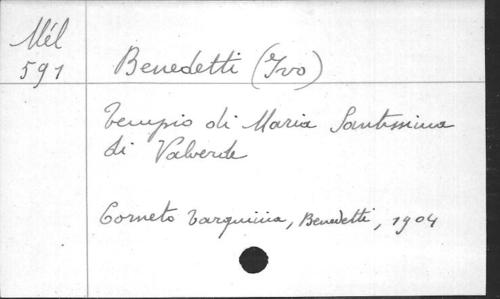 Mél
591
Benedetti (Ivo)
Tempio di Maria Santissima
di Valverde
Corneto Tarquinia, Benedetti, 1904